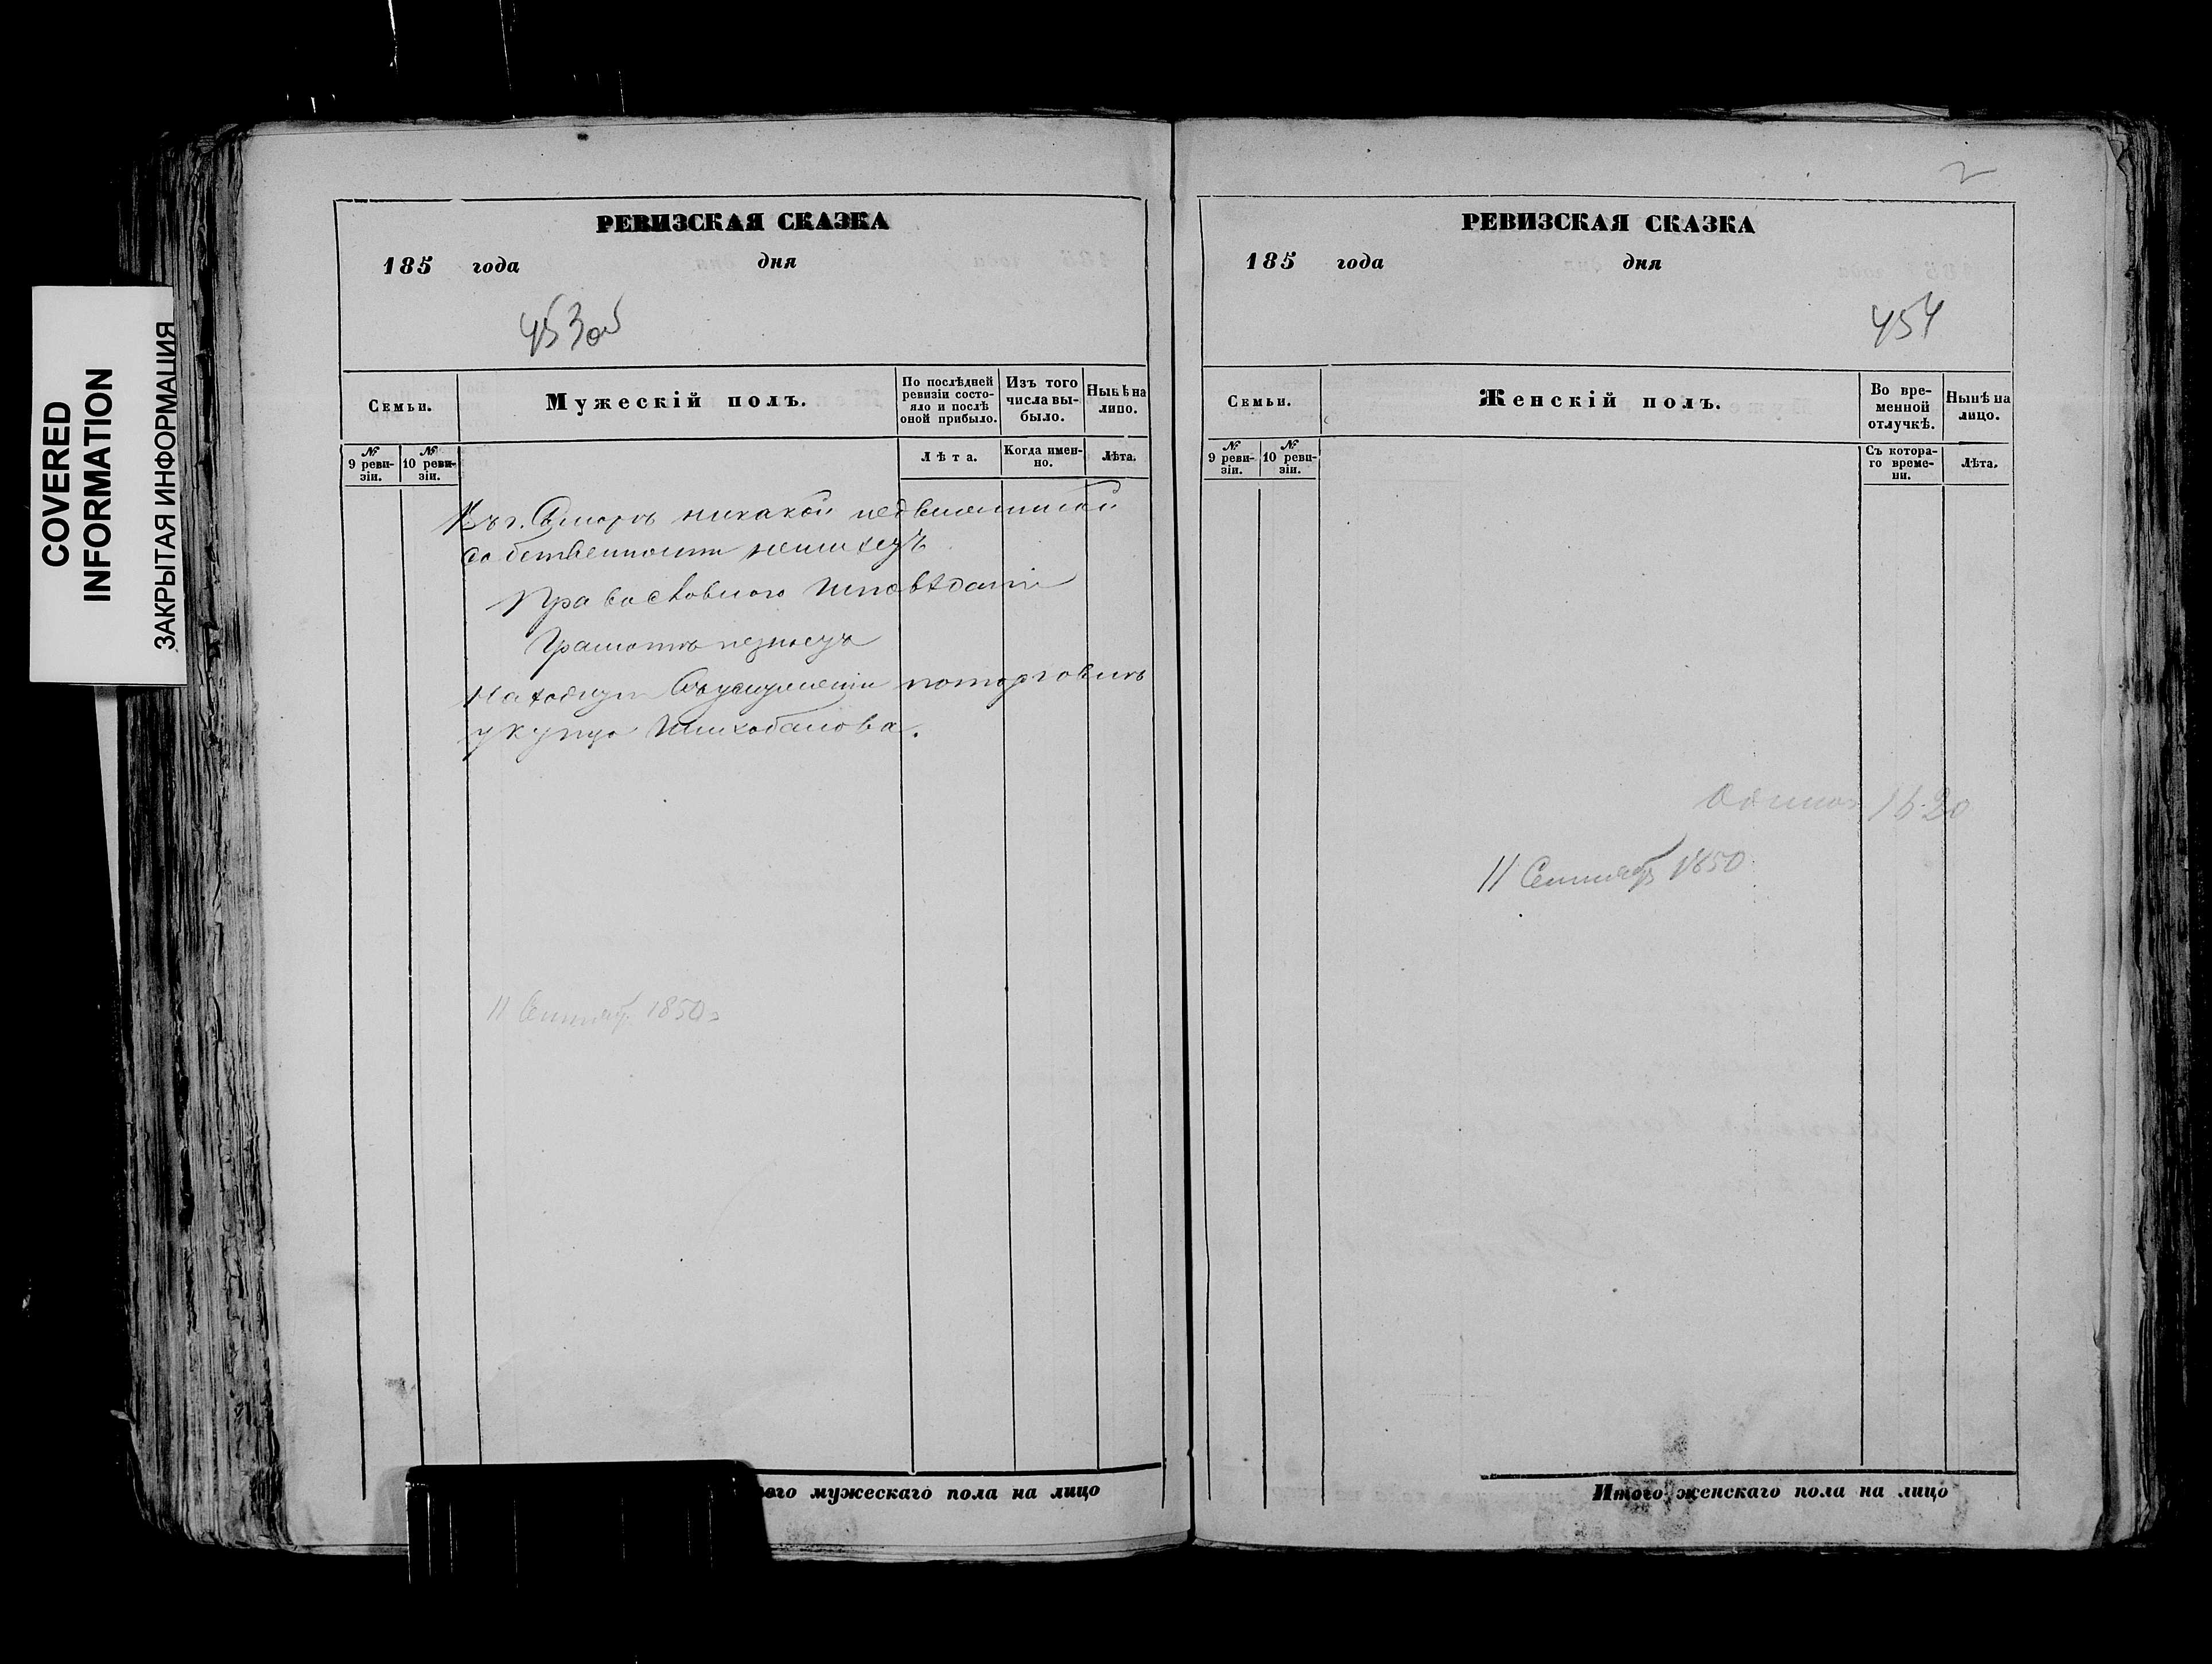 COVERED
INFORMATION
ЗАКРЫТАЯ ИНФОРМАЦИЯ
РЕВИЗСКАЯ СКАЗКА
185 года дня
453об
Семьи.
Мужескій полъ.
По послѣдней ревизіи состояло и послѣ оной прибыло.
Изъ того числа выбыло.
Нынѣ на лицо.
№ 9 ревизіи.
№ 10 ревизіи.
Лѣта.
Когда именно.
Лѣта.
Въ г. никакой недвижимой
собственности неимеетъ
Православного исповѣданія
Грамотѣ незнаетъ
Находится въ услужении поторговлѣ
у купца
11 Сентяб. 1850г
Итого мужескаго пола на лицо
2
РЕВИЗСКАЯ СКАЗКА
185 года дня
454
Семьи.
Женскій полъ.
Во временной отлучкѣ.
Нынѣ на лицо.
№ 9 ревизіи.
№ 10 ревизіи.
Съ котораго времени.
Лѣта.
11 Сентября 1850
Итого женскаго пола на лицо